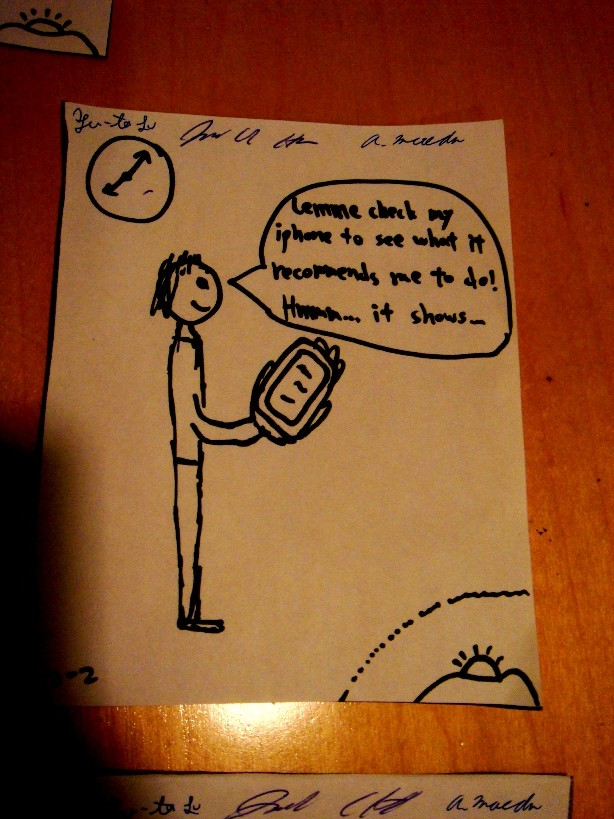 Yu-to Lu
a. maeda
Lemme check my
iphone to see what it
recommends me to do!
Hmmm... it shows...
-2
-to Lu
a. maeda